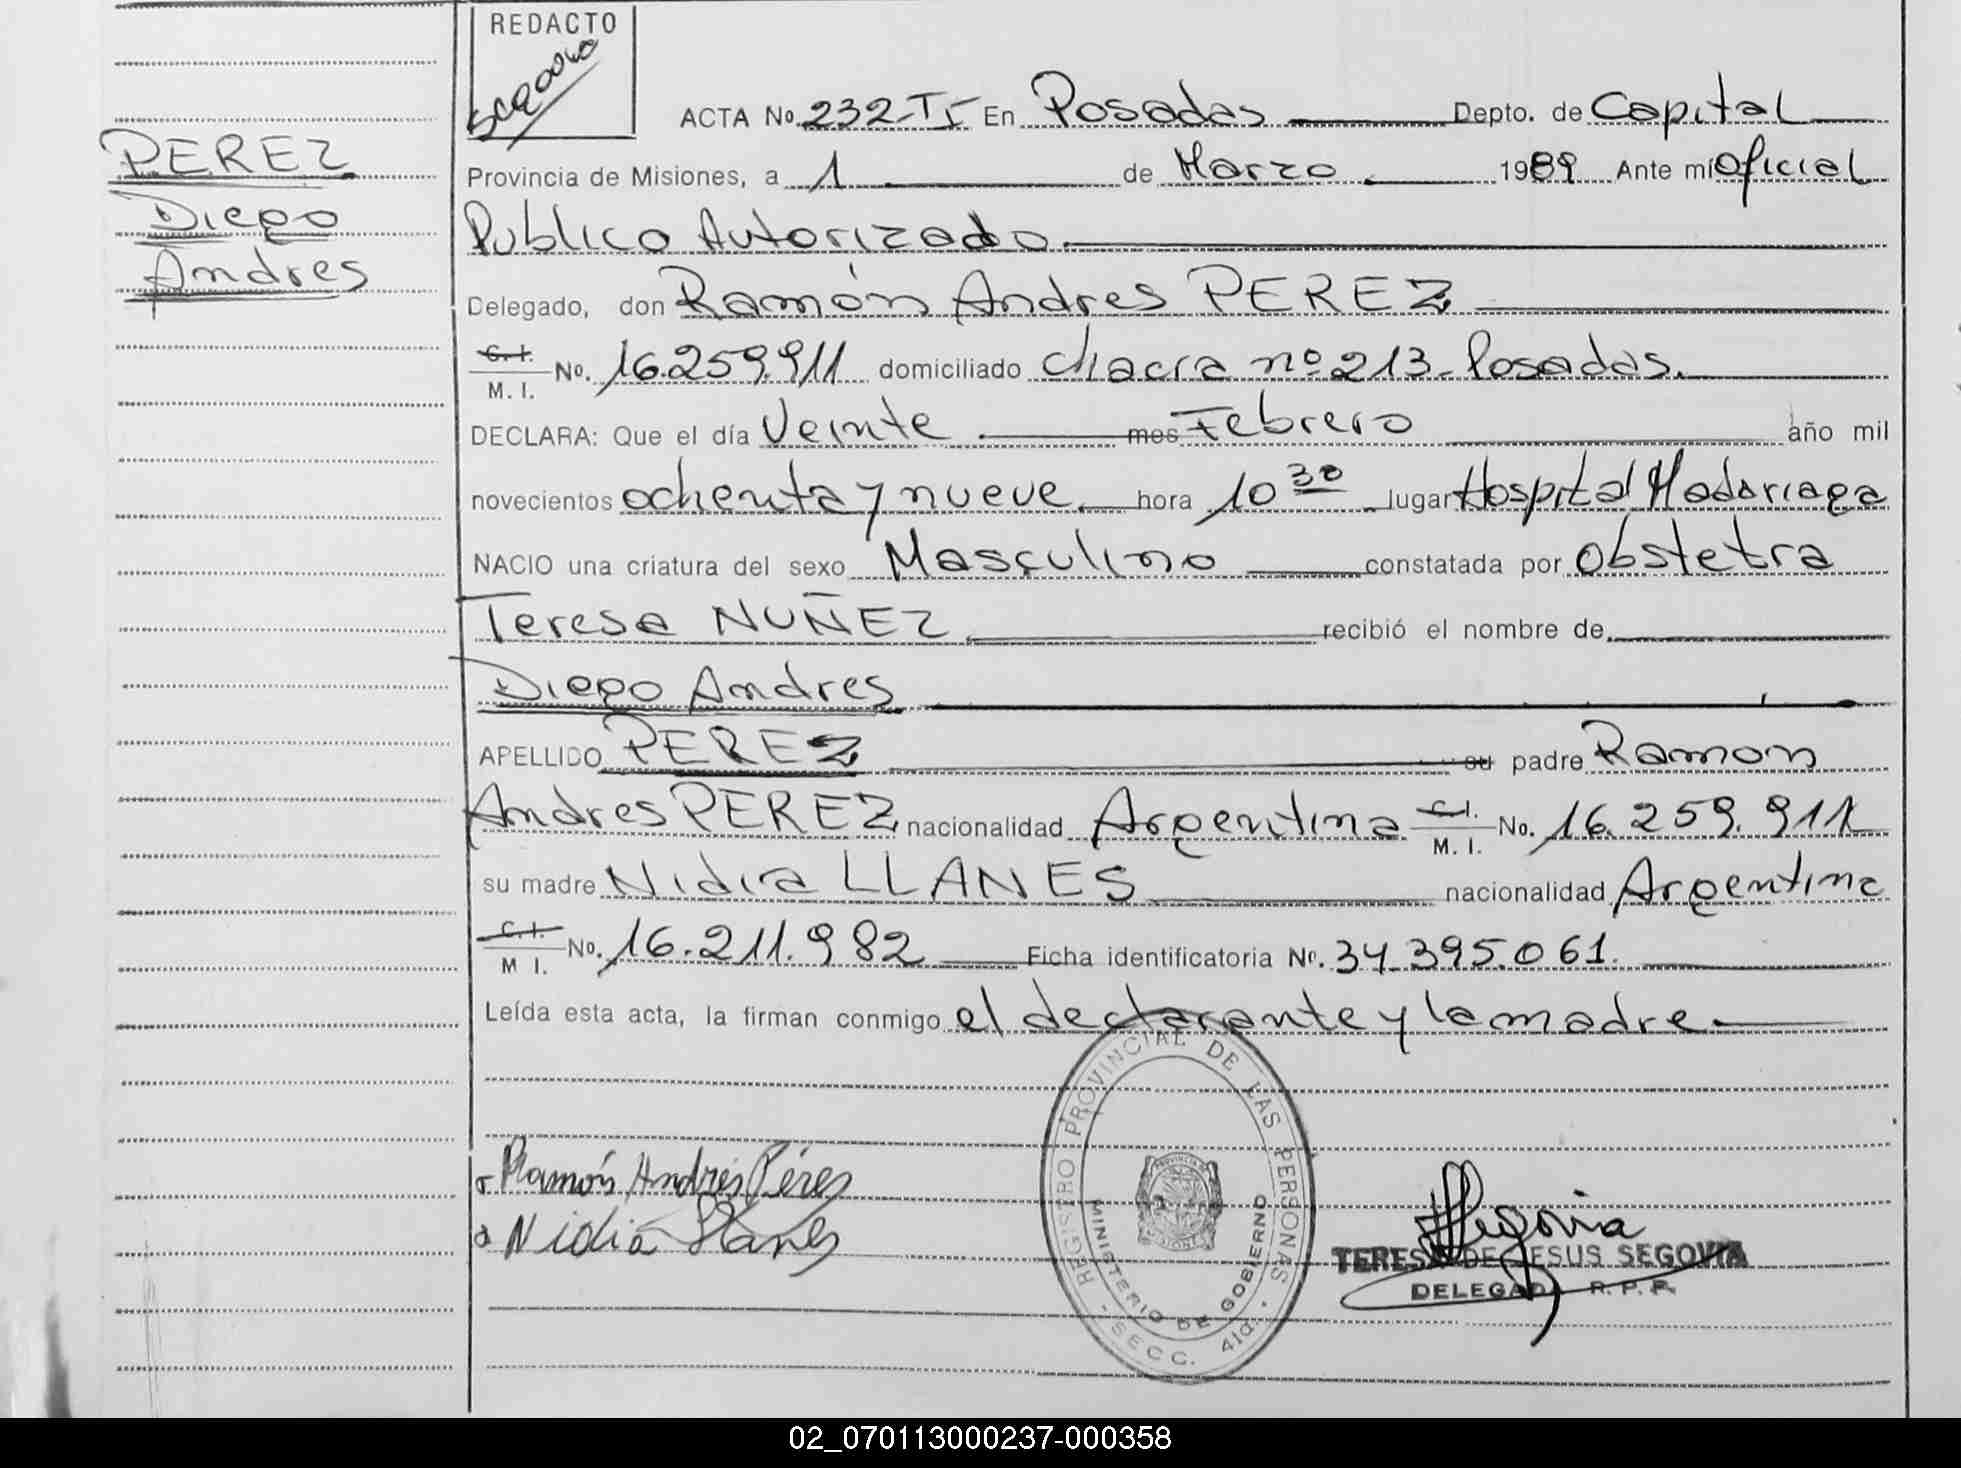 REDACTO
ACTA No. 232-TI En Posadas Depto. de Capital
PEREZ
Diego
Andres
Provincia de Misiones, a 1 de Marzo 1989 Ante mí Oficial
Publico Autorizado.
Delegado, don Ramón Andres PEREZ
C.I.
M. I. No. 16.259.911 domiciliado chacra nº 213- Posadas.
DECLARA: Que el día Veinte mes Febrero año mil
novecientos ochenta y nueve hora 10 30 lugar Hospital Madariaga
NACIO una criatura del sexo Masculino constatada por Obstetra
Teresa NUÑEZ recibió el nombre de
Diego Andres
APELLIDO PEREZ su padre Ramon
Andres PEREZ nacionalidad Argentina C.I. M. I. No. 16.259.911
su madre Nidia LLANES nacionalidad Argentina
C.I.
M I. No. 16.211.982 Ficha identificatoria Nº. 34.395.061.
Leída esta acta, la firman conmigo el declarante y la madre
Ramón Andrés Pérez
Nidia Llanes
REGISTRO PROVINCIAL DE LAS PERSONAS
MINISTERIO DE GOBIERNO
SECC. 4ta.
PROVINCIA DE
MISIONES
Segovia
TERESA DE JESUS SEGOVIA
DELEGADA R. P. P.
02_070113000237-000358